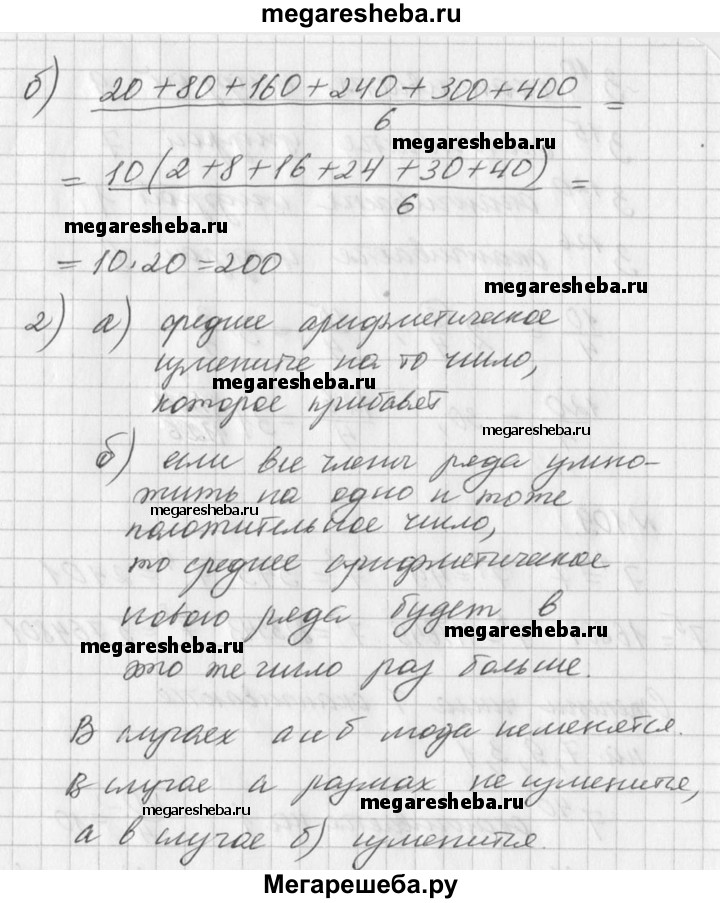 megaresheba.ru
б) 20 + 80 + 160 + 240 + 300 + 400 =
6
megaresheba.ru
= 10(2 + 8 + 16 + 24 + 30 + 40) =
6
megaresheba.ru
= 10 · 20 = 200
2) а) среднее арифметическое
измените на то число,
megaresheba.ru
которое прибавят
megaresheba.ru
б) если все члены ряда умно-
жить на одно и тоже
megaresheba.ru
положительное число,
то среднее арифметическое
нового ряда будет в
megaresheba.ru
megaresheba.ru
это же число раз больше.
В случаех а и б мода неменятся.
В случае а размах не изменится,
megaresheba.ru
megaresheba.ru
а в случае б) изменится.
megaresheba.ru
Мегарешеба.ру